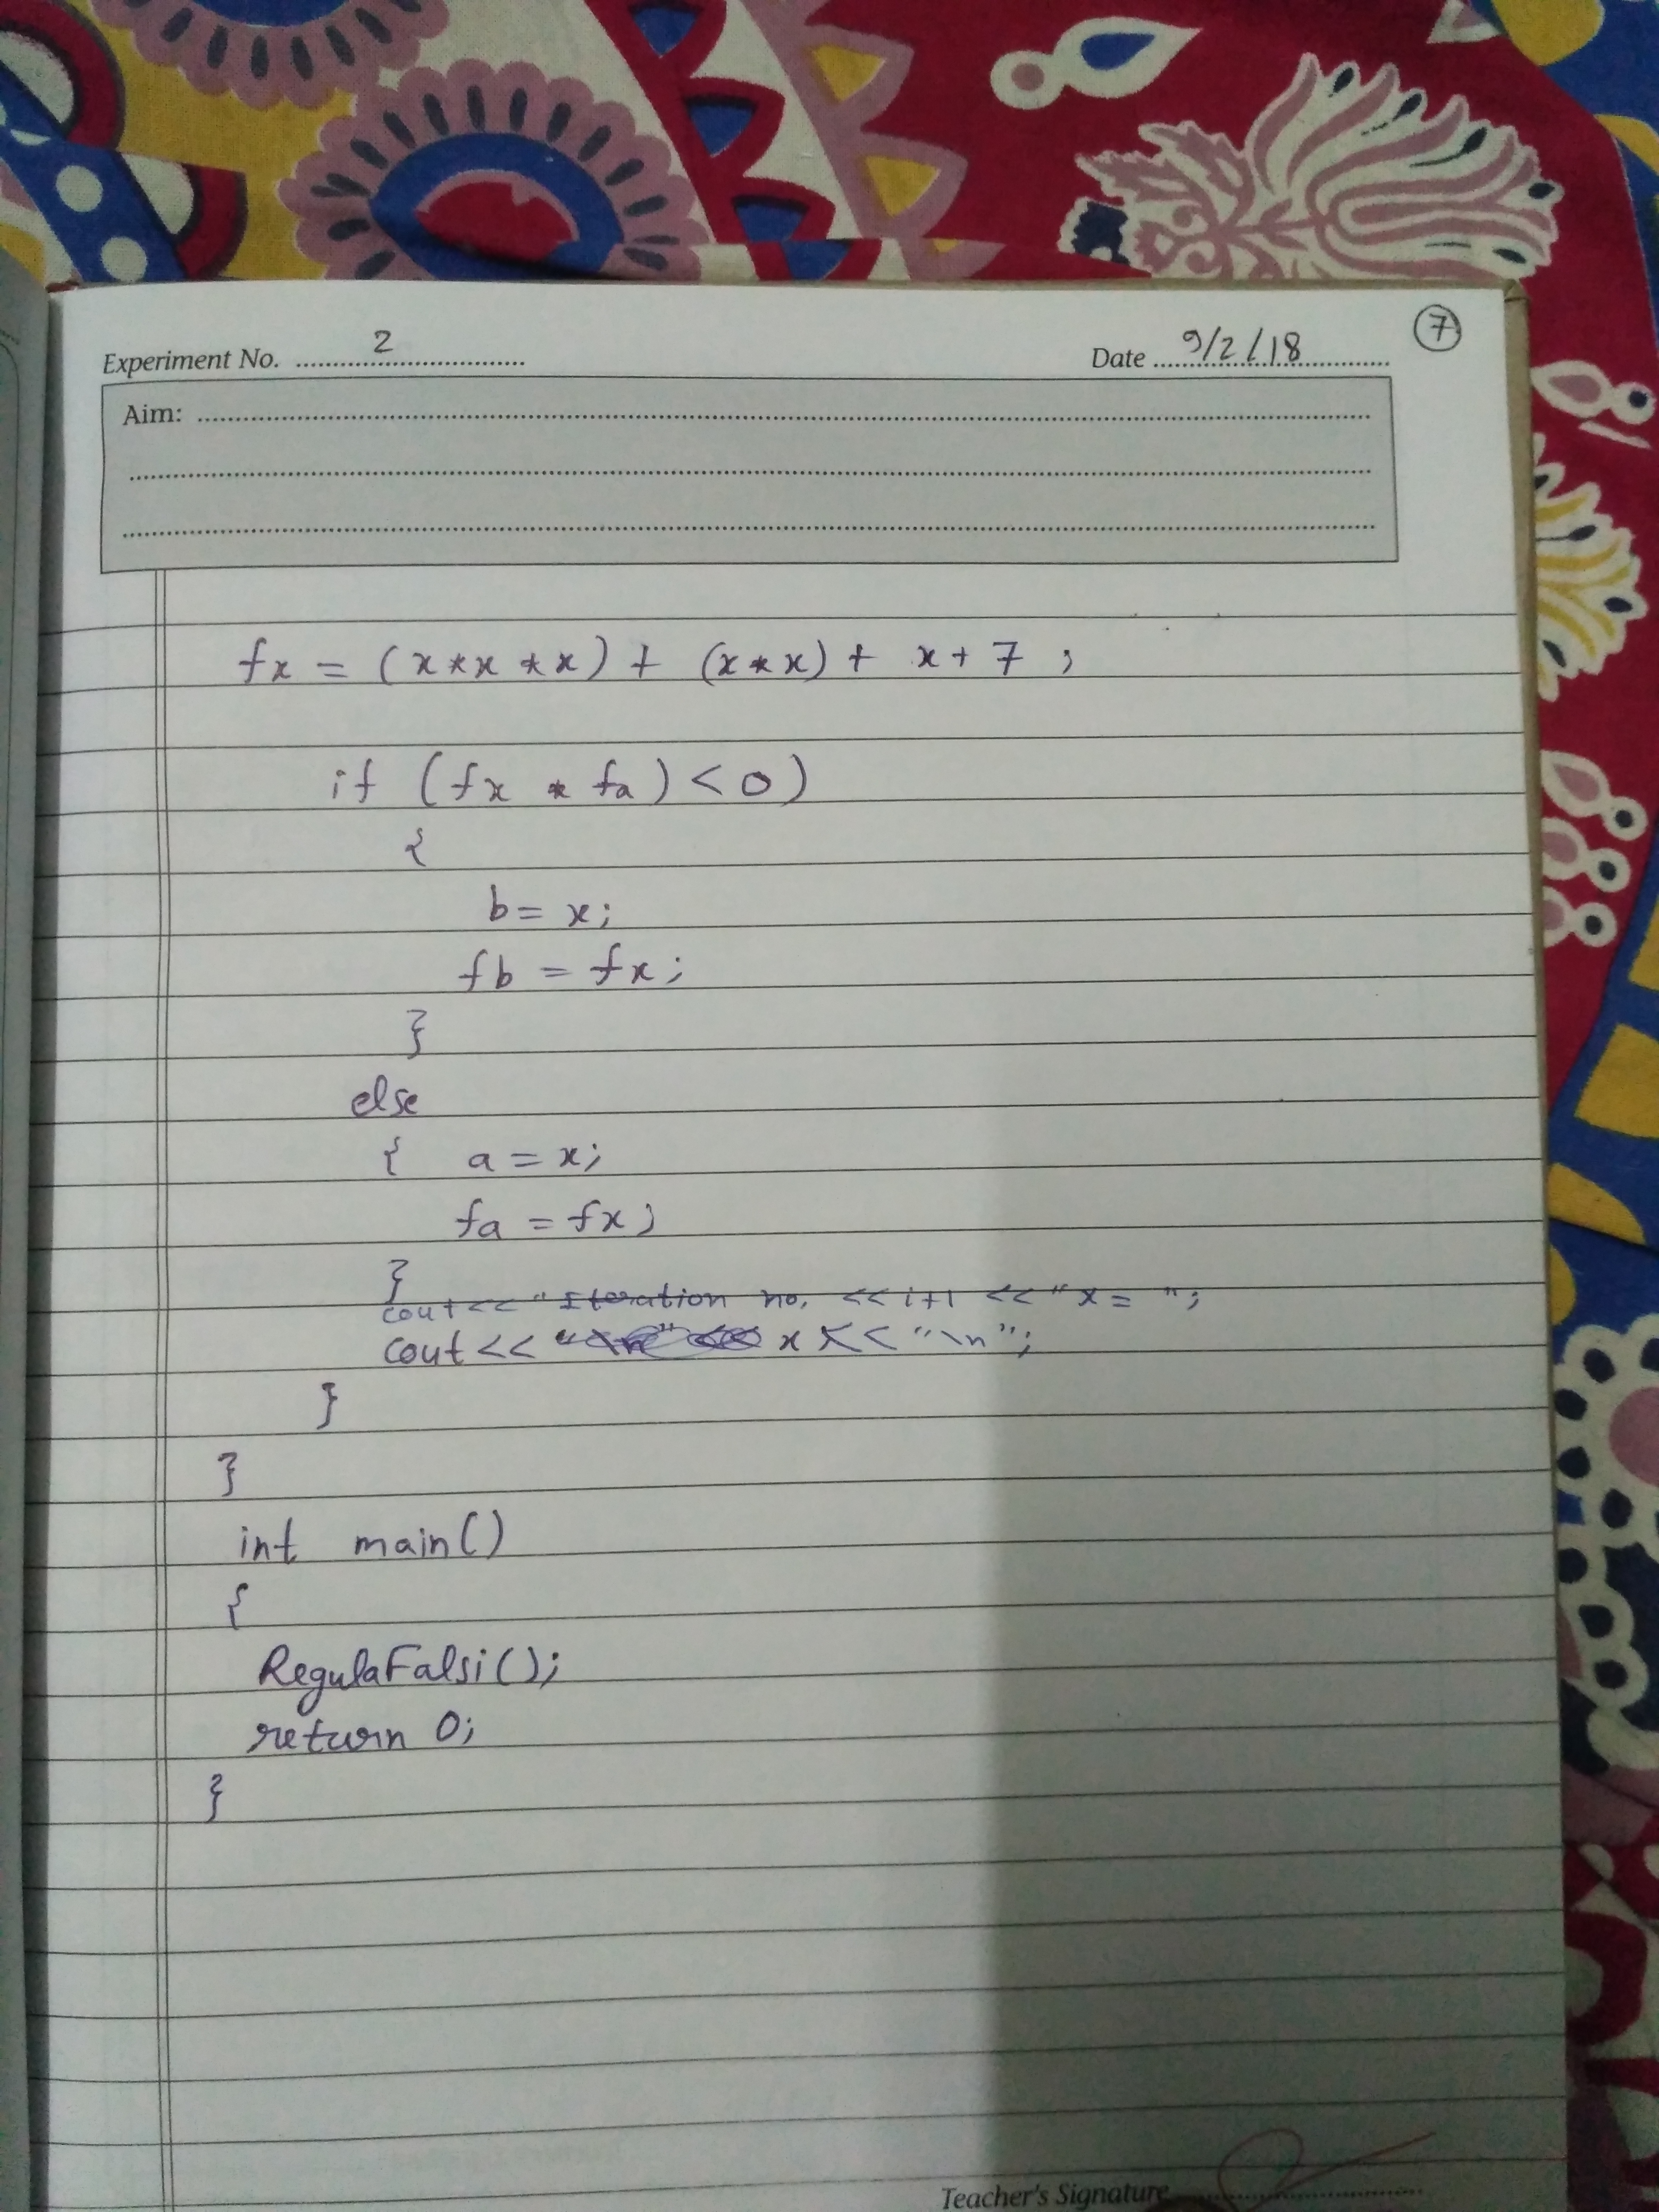 7
Experiment No. 2 Date 9/2/18
Aim:
fx = (x*x*x) + (x*x) + x+7 ;
if (fx * fa) <0)
{
b= x;
fb = fx;
}
else
{ a = x;
fa = fx;
}
cout<< "Iteration no. << i+1 << "x = ";
cout << x << "\n";
}
}
int main()
{
RegulaFalsi();
return 0;
}
Teacher's Signature